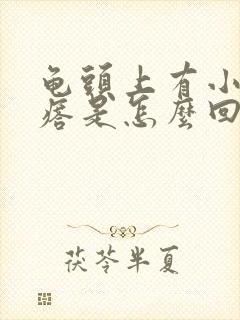 龟頭上有小
痞是怎麼回
茯苓半夏